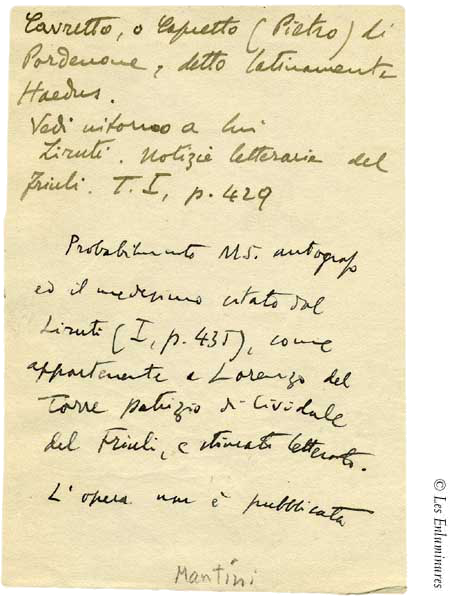 Cavretto, o Capretto (Pietro) di
Pordenone, detto latinamente
Haedus.
Vedi intorno a lui
Liruti. Notizie letterarie del
Friuli. T. I, p. 429
Probabilmente MS. autografo
ed il medesimo citato dal
Liruti (I, p. 435), come
appartenente a Lorenzo del
Torre patrizio di Cividale
del Friuli, e stimato letterato.
L'opera non è pubblicata
Mantini
© Les Enluminures